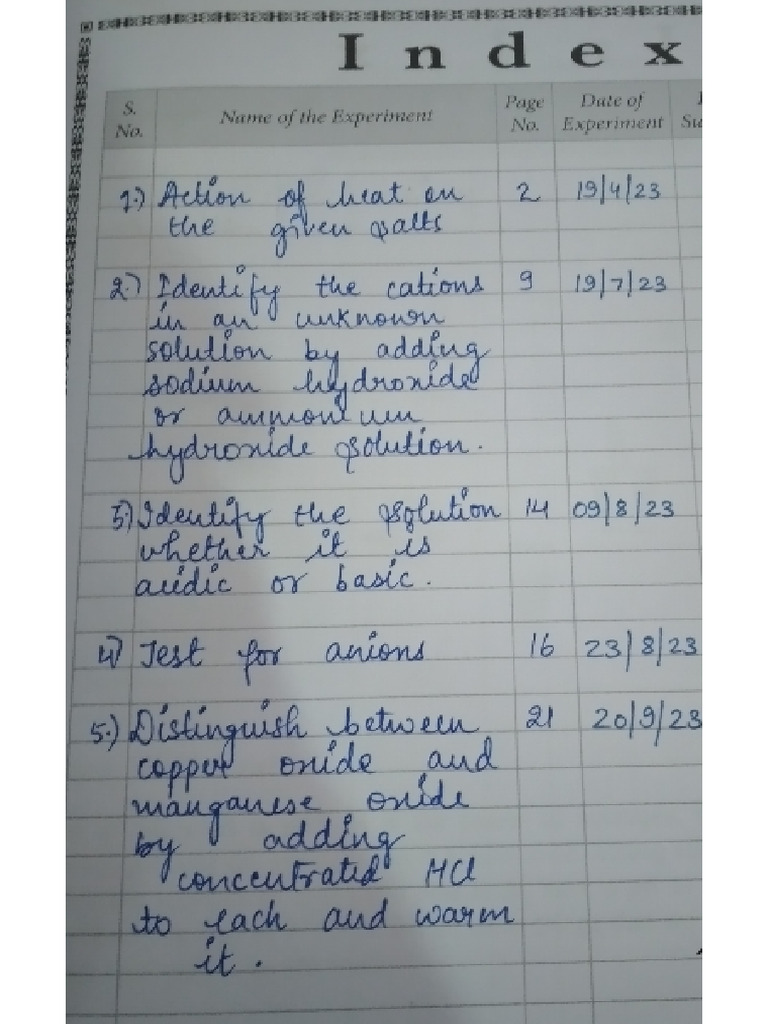 Index
S. No. Name of the Experiment Page No. Date of Experiment
1.) Action of heat on 2 19/4/23
the given salts
2.) Identify the cations 9 19/7/23
in an unknown
solution by adding
sodium hydroxide
or ammonium
hydroxide solution.
3) Identify the solution 14 09/8/23
whether it is
acidic or basic.
4) Test for anions 16 23/8/23
5.) Distinguish between 21 20/9/23
copper oxide and
manganese oxide
by adding
concentrated HCl
to each and warm
it.